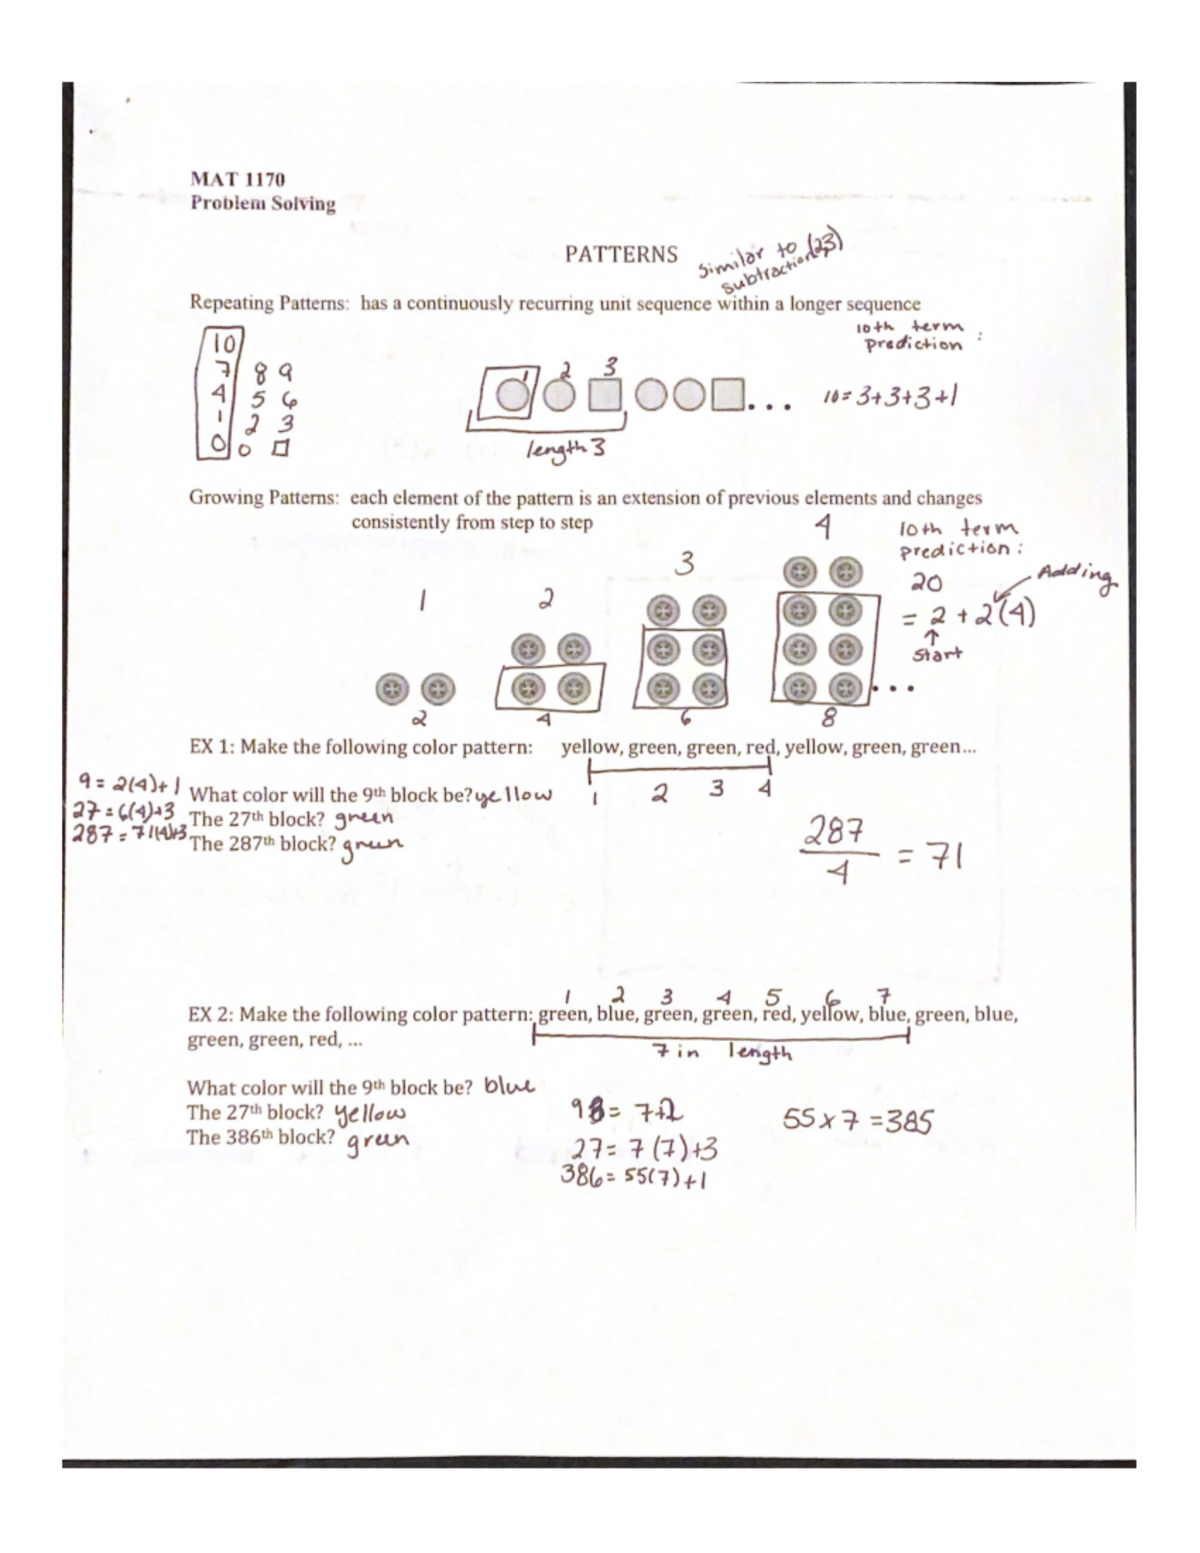 MAT 1170
Problem Solving
PATTERNS
Similar to (23)
subtraction
Repeating Patterns: has a continuously recurring unit sequence within a longer sequence
10th term
prediction :
10
7 8 9
4 5 6
1 2 3
0 0 □
1 2 3
... 10=3+3+3+1
length 3
Growing Patterns: each element of the pattern is an extension of previous elements and changes
consistently from step to step
1 2 3 4
10th term
prediction:
20 Adding
= 2 + 2(4)
↑
Start
...
2 4 6 8
EX 1: Make the following color pattern: yellow, green, green, red, yellow, green, green...
1 2 3 4
9 = 2(4)+1 What color will the 9th block be? yellow
27=6(4)+3 The 27th block? green
287=71(4)+3 The 287th block? green
287/4 = 71
1 2 3 4 5 6 7
EX 2: Make the following color pattern: green, blue, green, green, red, yellow, blue, green, blue,
green, green, red, ...
7 in length
What color will the 9th block be? blue
The 27th block? yellow
The 386th block? green
9 = 7+2
27= 7(7)+3
386= 55(7)+1
55x7=385